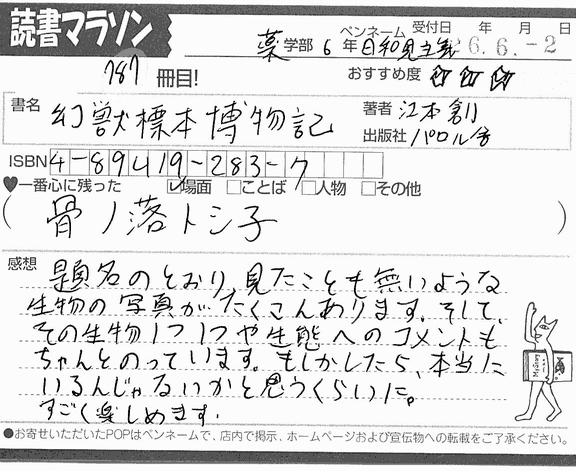 読書マラソン
787冊目!
薬学部 6年 ペンネーム 日和見主義
受付日 年 月 日
26.6.-2
おすすめ度 ☆☆☆
書名 幻獣標本博物記
著者 江本創
出版社 パロル舎
ISBN 4-89419-283-7
♥一番心に残った ☑場面 □ことば □人物 □その他
(骨ノ落トシ子)
感想 題名のとおり、見たことも無いような
生物の写真がたくさんあります。そして、
その生物1つ1つや生態へのコメントも
ちゃんとのっています。もしかしたら、本当に
いるんじゃないかと思うくらいに。
すごく楽しめます。
●お寄せいただいたPOPはペンネームで、店内で掲示、ホームページおよび宣伝物への転載をご了承ください。